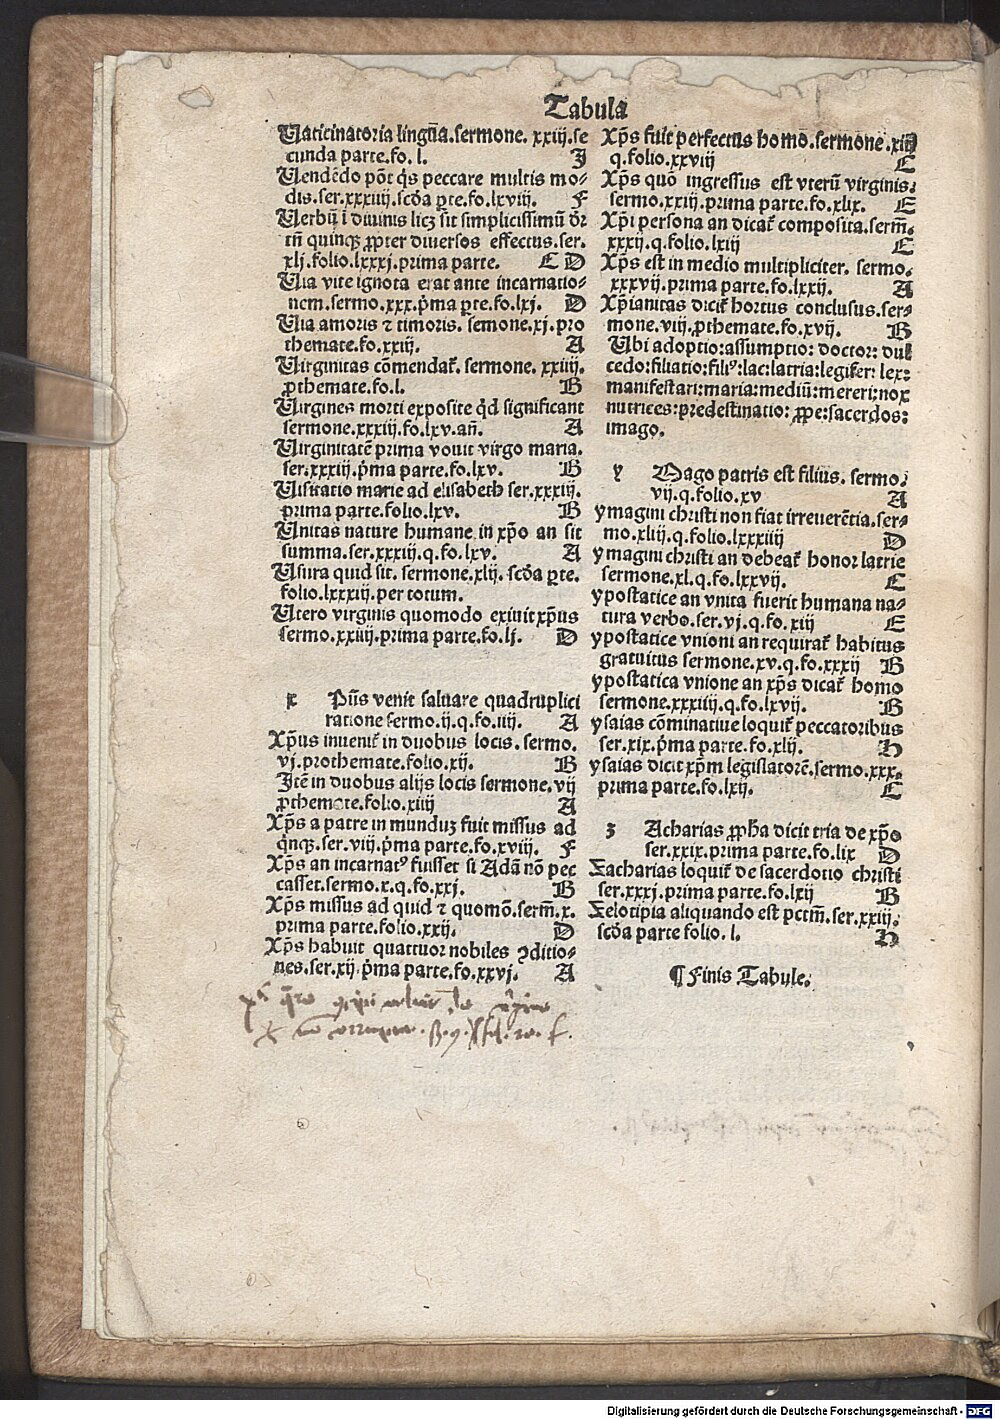 Tabula
Uaticinatoria lingũa.sermone. xxiij.se
cunda parte.fo. l. J
Uendēdo põt q̇s peccare multis mo⸗
dis.ser.xxxiiij.scḋa ꝑte.fo.lxviij. F
Uerbũ ĩ diuinis licꝫ sit simplicissimũ ḋr
tñ quinqꝫ ꝓpter diuersos effectus.ser.
xlj.folio.lxxxj.prima parte. C D
Uia vite ignota erat ante incarnatio⸗
nem.sermo.xxx.ṗma ꝑte.fo.lxj. D
Uia amoris ⁊ timoris. semone.xj.pro
themate.fo.xxiij. A
Uirginitas cõmendat̃. sermone. xxiiij.
ꝓthemate.fo.l. B
Uirgines morti exposite q̇d significant
sermone.xxxiij.fo.lxv.añ. A
Uirginitatẽ prima vouit virgo maria.
ser.xxxiij.ṗma parte.fo.lxv. B
Uisitatio marie ad elisabeth ser.xxxiij.
prima parte.folio.lxv. B
Unitas nature humane in xp̃o an sit
summa.ser.xxxiij.q.fo.lxv. A
Usura quid sit. sermone.xlij. scḋa ꝑte.
folio.lxxxiij.per totum.
Utero virginis quomodo exiuit xp̃us
sermo.xxiiij.prima parte.fo.lj. D
x Pũs venit saluare quadruplici
ratione sermo.ij.q.fo.iiij. A
Xp̃us inuenit̃ in duobus locis. sermo.
vj.prothemate.folio.xij. B
Jtẽ in duobus alijs locis sermone.vij
ꝓthemate.folio.xiiij A
Xp̃s a patre in munduꝫ fuit missus ad
q̇nqꝫ.ser.viij.ṗma parte.fo.xviij. F
Xp̃s an incarnatꝰ fuisset si Adã nõ pec
casset.sermo.x.q.fo.xxj. B
Xp̃s missus ad quid ⁊ quomõ.serm̃.x.
prima parte.folio.xxij. D
Xp̃s habuit quattuor nobiles ꝯditio⸗
nes.ser.xij.ṗma parte.fo.xxvj. A
Xp̃s fuit perfectus homo.sermone.xiij
q.folio.xxviij E
Xp̃s quõ ingressus est vterũ virginis.
sermo.xxiij.prima parte.fo.xlix. E
Xp̃i persona an dicat̃ composita.serm̃.
xxxij.q.folio.lxiij E
Xp̃s est in medio multipliciter. sermo.
xxxvij.prima parte.fo.lxxij. A
Xp̃ianitas dicit̃ hortus conclusus.ser⸗
mone.viij.ꝓthemate.fo.xvij. B
Ubi adoptio:assumptio: doctor: dul
cedo:filiatio:filiꝰ:lac:latria:legifer: lex:
manifestari:maria:mediũ:mereri:nox
nutrices:predestinatio: ꝓpe:sacerdos:
imago.
y Mago patris est filius. sermo.
vij.q.folio.xv A
ymagini christi non fiat irreuerẽtia.ser⸗
mo.xliij.q.folio.lxxxiiij D
ymagini christi an debeat̃ honor latrie
sermone.xl.q.fo.lxxvij. C
ypostatice an vnita fuerit humana na⸗
tura verbo.ser.vj.q.fo.xiij E
ypostatice vnioni an requirat̃ habitus
gratuitus sermone.xv.q.fo.xxxij B
ypostatica vnione an xp̃s dicat̃ homo
sermone.xxxiiij.q.fo.lxvij. B
ysaias cõminatiue loquit̃ peccatoribus
ser.xix.ṗma parte.fo.xlij. H
ysaias dicit xp̃m legislatorẽ.sermo.xxx.
prima parte.fo.lxij. E
z Acharias ꝓpha dicit tria de xp̃o
ser.xxix.prima parte.fo.lix D
Zacharias loquit̃ de sacerdotio christi
ser.xxxj.prima parte.fo.lxij B
Zelotipia aliquando est pctm̃.ser.xxiij.
scḋa parte folio. l. H
¶ Finis Tabule.
Digitalisierung gefördert durch die Deutsche Forschungsgemeinschaft - DFG